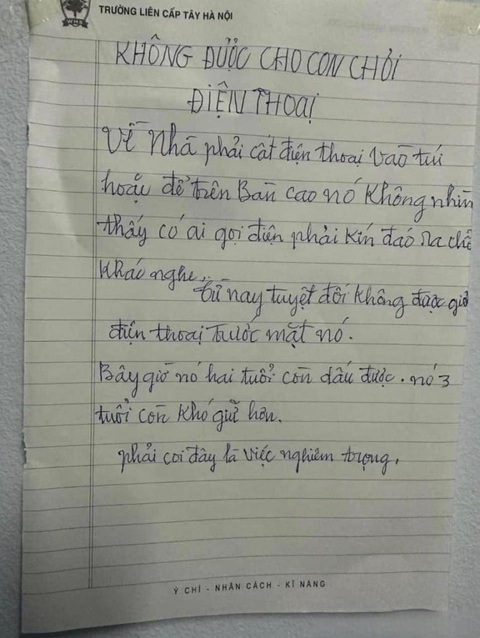 TRƯỜNG LIÊN CẤP TÂY HÀ NỘI
KHÔNG ĐƯỢC CHO CON CHƠI
ĐIỆN THOẠI
Về Nhà phải cất điện thoại vào túi
hoặc để trên Bàn cao nó Không nhìn
thấy có ai gọi điện phải Kín đáo ra chỗ
Khác nghe.
từ nay tuyệt đối không được giơ
điện thoại trước mặt nó.
Bây giờ nó hai tuổi còn dấu được. nó 3
tuổi còn khó giữ hơn.
phải coi đây là việc nghiêm trọng.
Ý CHÍ - NHÂN CÁCH - KĨ NĂNG